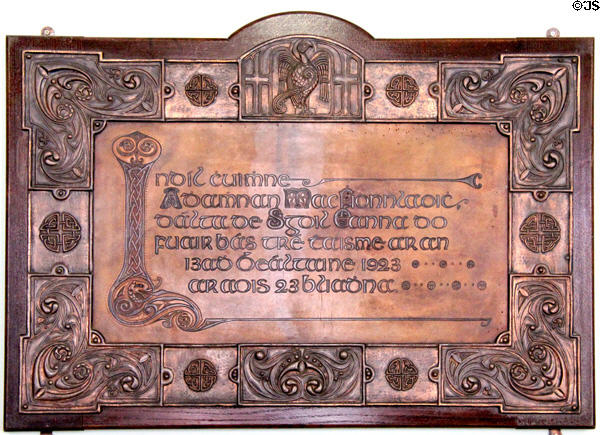 ©JS
I nDíl ċuiṁne
Adamnan Mac Fionnlaoiċ,
dálta de Sgoil Éanna do
fuair bás tré ṫaisme ar an
13aḋ Béaltaine 1923
ar aois 23 bliaḋna.